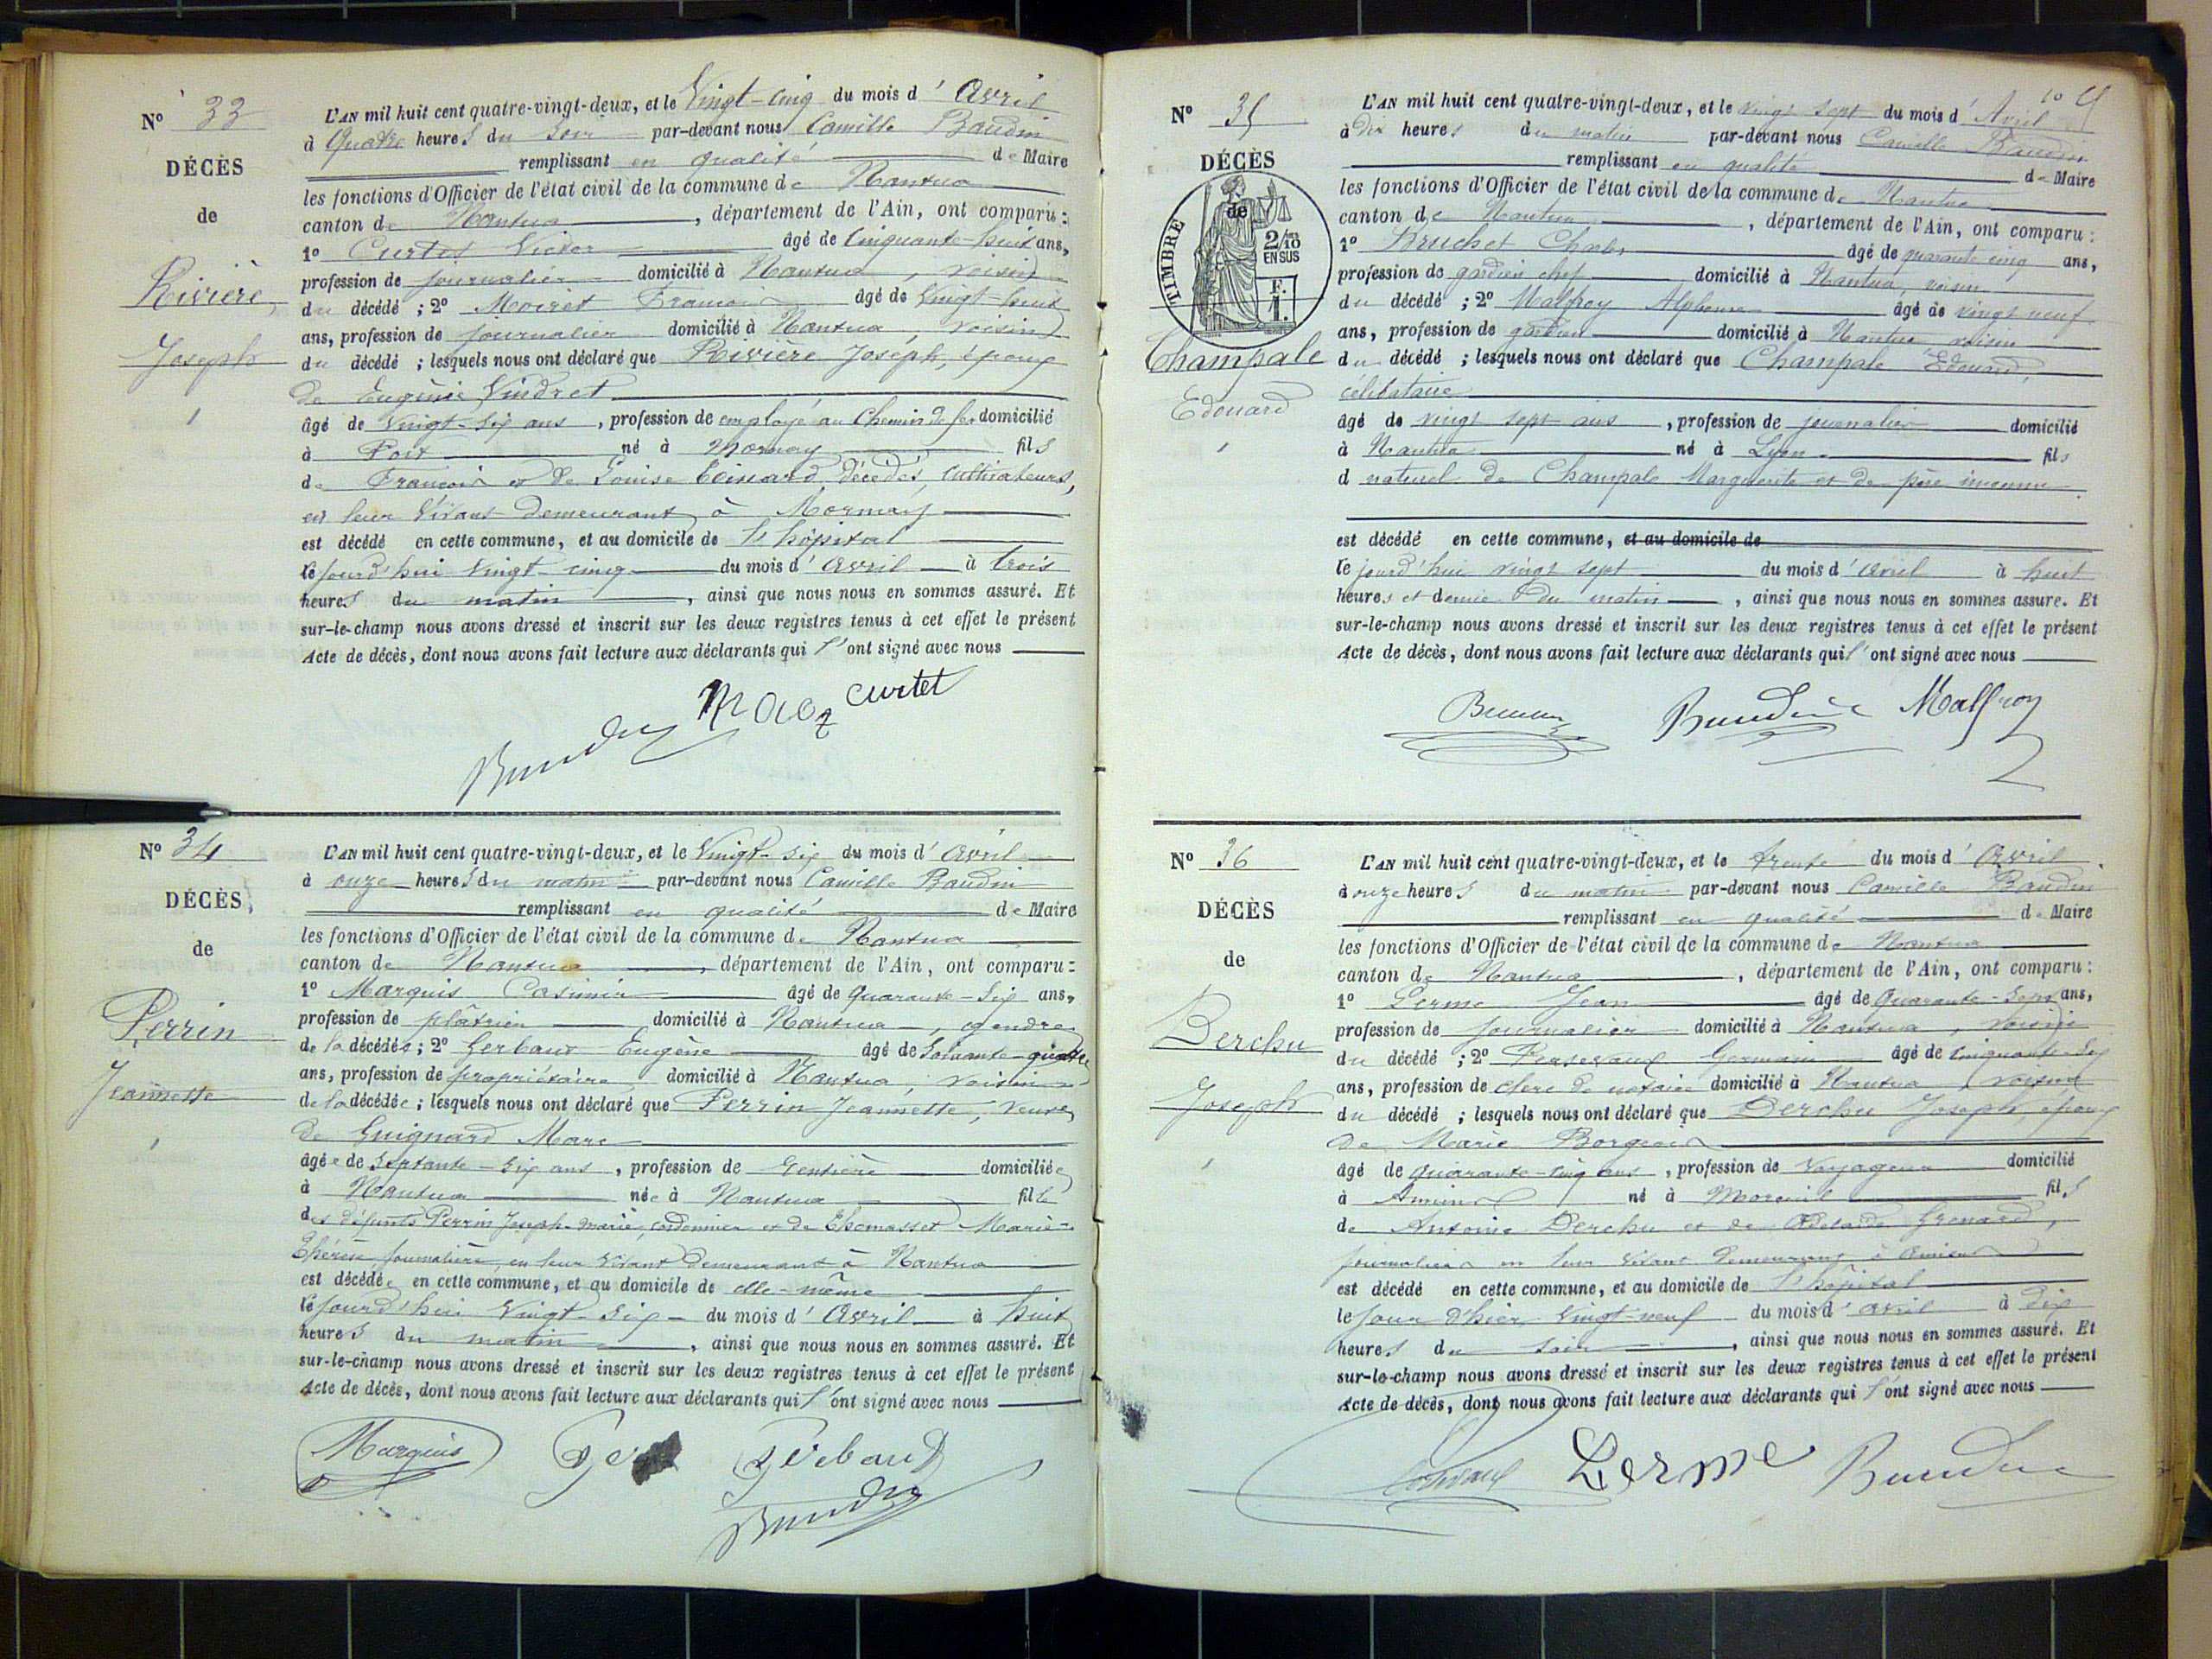 N° 33
DÉCÈS
de
Rivière
Joseph
L'AN mil huit cent quatre-vingt-deux, et le Vingt-cinq du mois d'Avril
à Quatre heures du Soir par-devant nous Camille Baudin
remplissant en qualité de Maire
les fonctions d'Officier de l'état civil de la commune de Nantua
canton de Nantua, département de l'Ain, ont comparu :
1° Curtet Victor âgé de Cinquante-huit ans,
profession de journalier domicilié à Nantua, voisin
du décédé ; 2° François âgé de Vingt-huit
ans, profession de journalier domicilié à Nantua, voisin
du décédé ; lesquels nous ont déclaré que Rivière Joseph, époux
de Eugénie Vindret
âgé de Vingt-six ans, profession de employé au Chemin de fer domicilié
à né à Mornay fils
de François et de Louise décédés, cultivateurs,
en leur vivant demeurant à Mornay
est décédé en cette commune, et au domicile de l'hôpital
le jourd'hui Vingt-cinq du mois d'Avril à trois
heures du matin, ainsi que nous nous en sommes assuré. Et
sur-le-champ nous avons dressé et inscrit sur les deux registres tenus à cet effet le présent
Acte de décès, dont nous avons fait lecture aux déclarants qui l'ont signé avec nous
curtet
Baudin
N° 34
DÉCÈS
de
Perrin
Jeannette
L'AN mil huit cent quatre-vingt-deux, et le Vingt-six du mois d'Avril
à onze heures du matin par-devant nous Camille Baudin
remplissant en qualité de Maire
les fonctions d'Officier de l'état civil de la commune de Nantua
canton de Nantua, département de l'Ain, ont comparu :
1° Marquis Casimir âgé de Quarante-six ans,
profession de plâtrier domicilié à Nantua, gendre
de la décédée ; 2° Gerbaud Eugène âgé de Soixante-quatre
ans, profession de propriétaire domicilié à Nantua, voisin
de la décédée ; lesquels nous ont déclaré que Perrin Jeannette, veuve
de Guignard Marc
âgée de Septante-six ans, profession de rentière domiciliée
à Nantua née à Nantua fille
des défunts Perrin Joseph-Marie, cordonnier et de Thomasset Marie-
Thérèse journalière, en leur vivant demeurant à Nantua
est décédée en cette commune, et au domicile de elle-même
le jourd'hui Vingt-six du mois d'Avril à huit
heures du matin, ainsi que nous nous en sommes assuré. Et
sur-le-champ nous avons dressé et inscrit sur les deux registres tenus à cet effet le présent
Acte de décès, dont nous avons fait lecture aux déclarants qui l'ont signé avec nous
Marquis Ger Gerbaud
Baudin
N° 35
DÉCÈS
de
TIMBRE
2/10
EN SUS
F.
1.
Champale
Edouard
L'AN mil huit cent quatre-vingt-deux, et le vingt sept du mois d'Avril
à Dix heures du matin par-devant nous Camille Baudin
remplissant en qualité de Maire
les fonctions d'Officier de l'état civil de la commune de Nantua
canton de Nantua, département de l'Ain, ont comparu :
1° Bruchet Charles âgé de quarante cinq ans,
profession de gardien chef domicilié à Nantua, voisin
du décédé ; 2° Malfroy Alphonse âgé de vingt neuf
ans, profession de gardien domicilié à Nantua voisin
du décédé ; lesquels nous ont déclaré que Champale Edouard,
célibataire
âgé de vingt sept ans, profession de journalier domicilié
à Nantua né à Lyon fils
d naturel de Champale Marguerite et de père inconnu
est décédé en cette commune, et au domicile de
le jourd'hui vingt sept du mois d'avril à huit
heures et demie du matin, ainsi que nous nous en sommes assure. Et
sur-le-champ nous avons dressé et inscrit sur les deux registres tenus à cet effet le présent
Acte de décès, dont nous avons fait lecture aux déclarants qui l'ont signé avec nous
Baudin Malfroy
N° 36
DÉCÈS
de
Derchu
Joseph
L'AN mil huit cent quatre-vingt-deux, et le trente du mois d'Avril
à onze heures du matin par-devant nous Camille Baudin
remplissant en qualité de Maire
les fonctions d'Officier de l'état civil de la commune de Nantua
canton de Nantua, département de l'Ain, ont comparu :
1° Lerme Jean âgé de Quarante-sept ans,
profession de journalier domicilié à Nantua, voisin
du décédé ; 2° Germain âgé de Cinquante-six
ans, profession de clerc de notaire domicilié à Nantua, voisin
du décédé ; lesquels nous ont déclaré que Derchu Joseph, époux
de Marie
âgé de Quarante-cinq ans, profession de Voyageur domicilié
à Amiens né à Moreuil fils
de Antoine Derchu et de Adelaïde Grenard,
journaliers en leur vivant demeurant à Amiens
est décédé en cette commune, et au domicile de l'hôpital
le jour d'hier Vingt-neuf du mois d'avril à dix
heures du soir, ainsi que nous nous en sommes assuré. Et
sur-le-champ nous avons dressé et inscrit sur les deux registres tenus à cet effet le présent
Acte de décès, dont nous avons fait lecture aux déclarants qui l'ont signé avec nous
Lerme Baudin